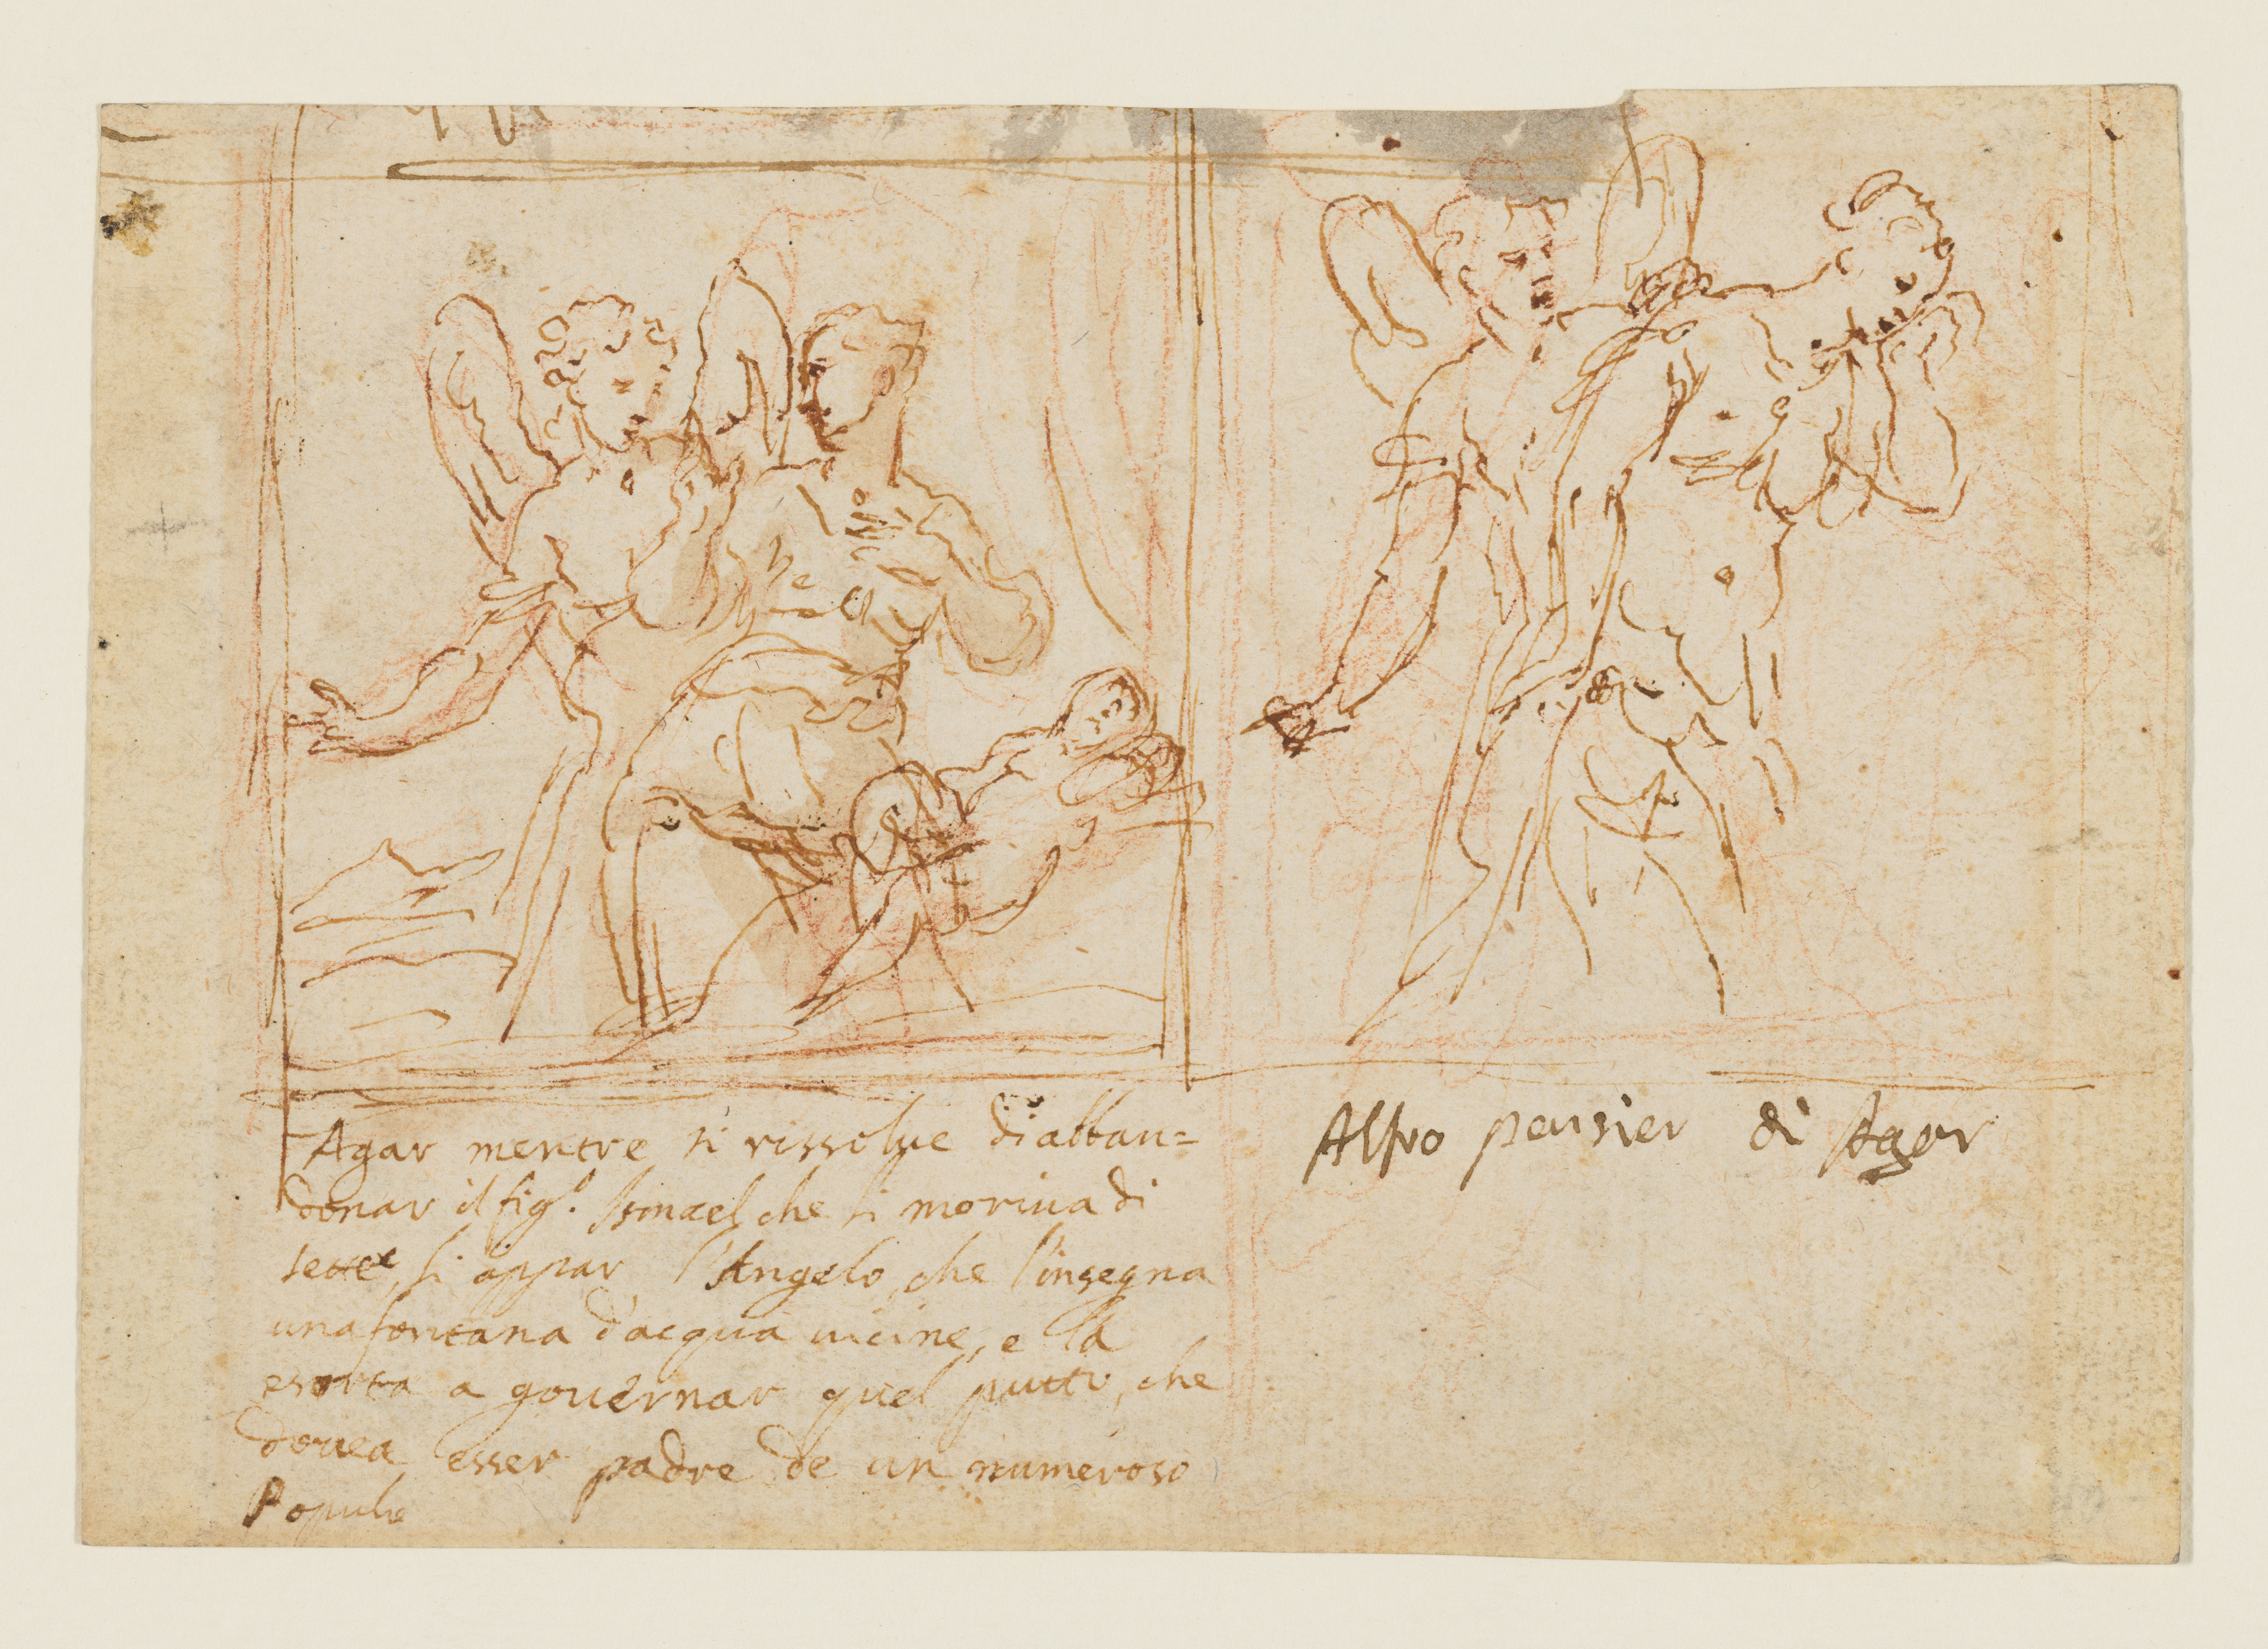 Agar mentre si rissolve di abban=
donar il fig.º Ismael che si moriva di
sette, li appar l'Angelo, che l'insegna
una fontana d'acqua vicine, e la
esorta a governar quel putto, che
dovea esser padre de un numeroso
Populo
Altro pensier di Agar